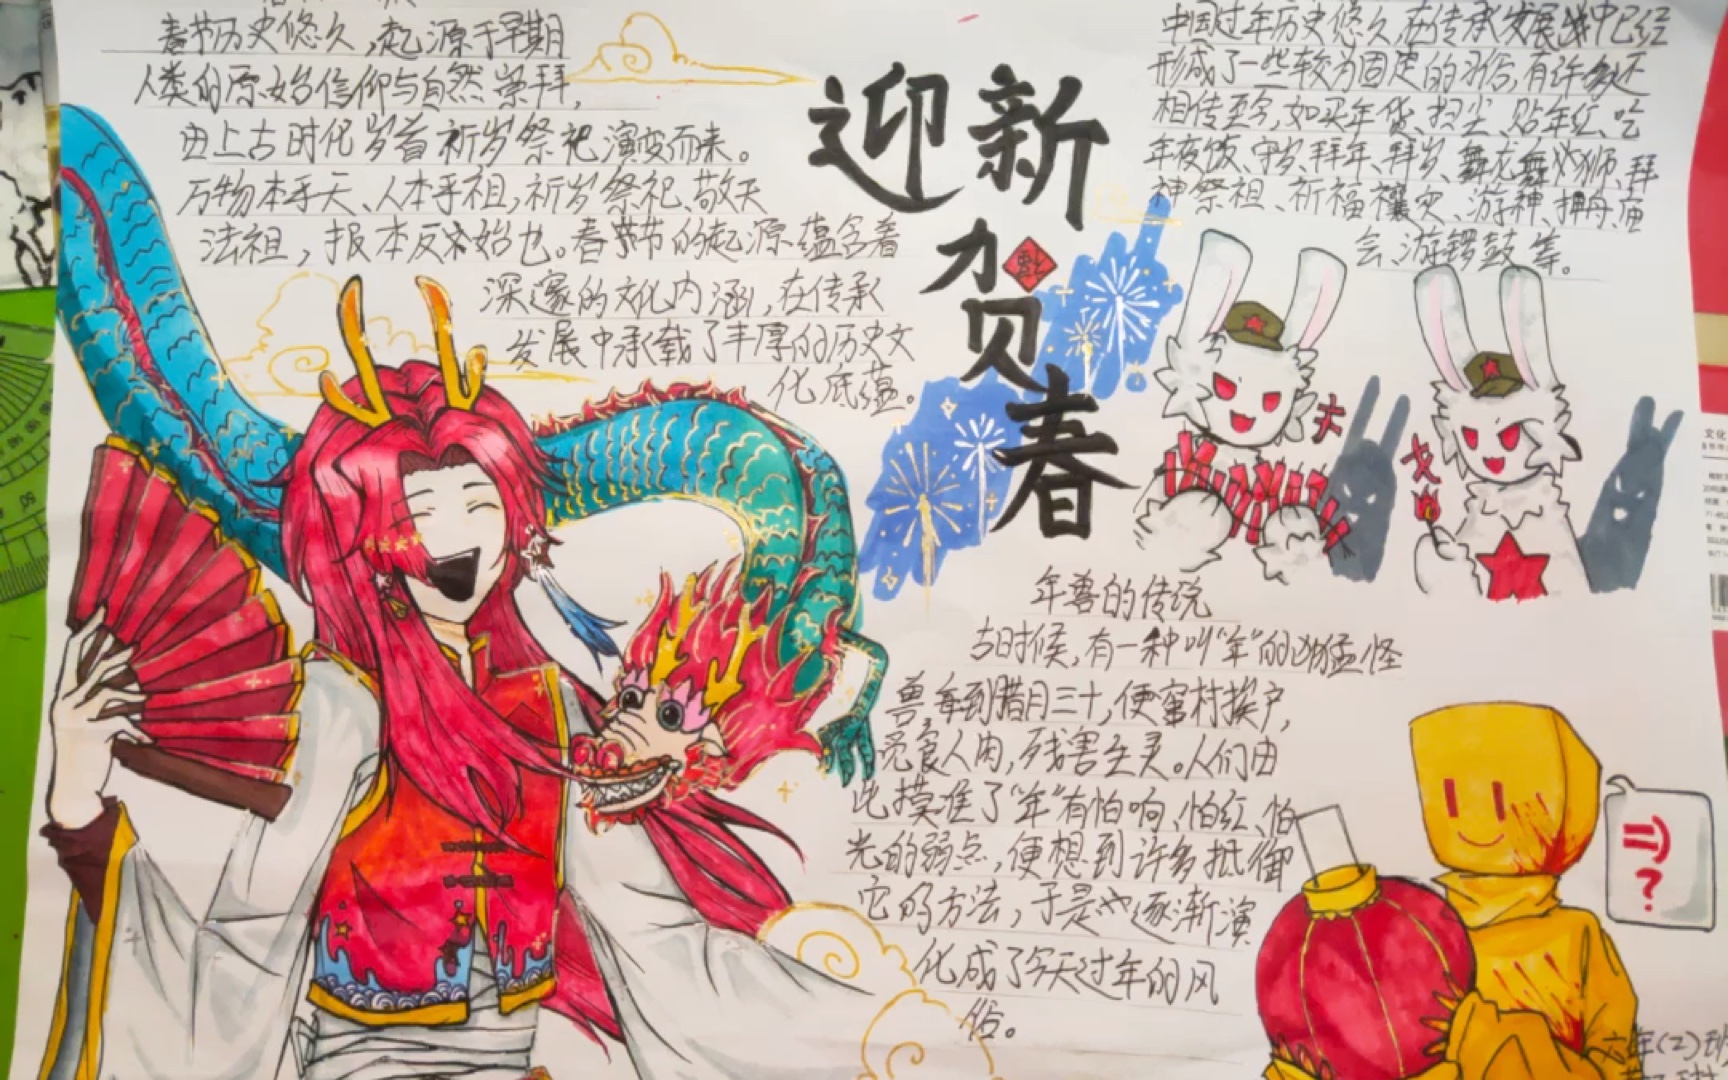 春节历史悠久,起源于早期
人类的原始信仰与自然崇拜,
由上古时代岁首祈岁祭祀演变而来。
万物本乎天、人本乎祖,祈岁祭祀、敬天
法祖,报本反始也。春节的起源蕴含着
深邃的文化内涵,在传承
发展中承载了丰厚的历史文
化底蕴。
迎新
贺春
中国过年历史悠久,在传承发展中已经
形成了一些较为固定的习俗,有许多还
相传至今,如买年货、扫尘、贴年红、吃
年夜饭、守岁、拜年、拜岁、舞龙舞狮、拜
神祭祖、祈福禳灾、游神、押舟、庙
会、游锣鼓等。
大
火
年兽的传说
古时候,有一种叫“年”的凶猛怪
兽,每到腊月三十,便窜村挨户,
觅食人肉,残害生灵。人们由
此摸准了“年”有怕响、怕红、怕
光的弱点,便想到许多抵御
它的方法,于是也逐渐演
化成了今天过年的风
俗。
=)
?
六年(2)班
文化